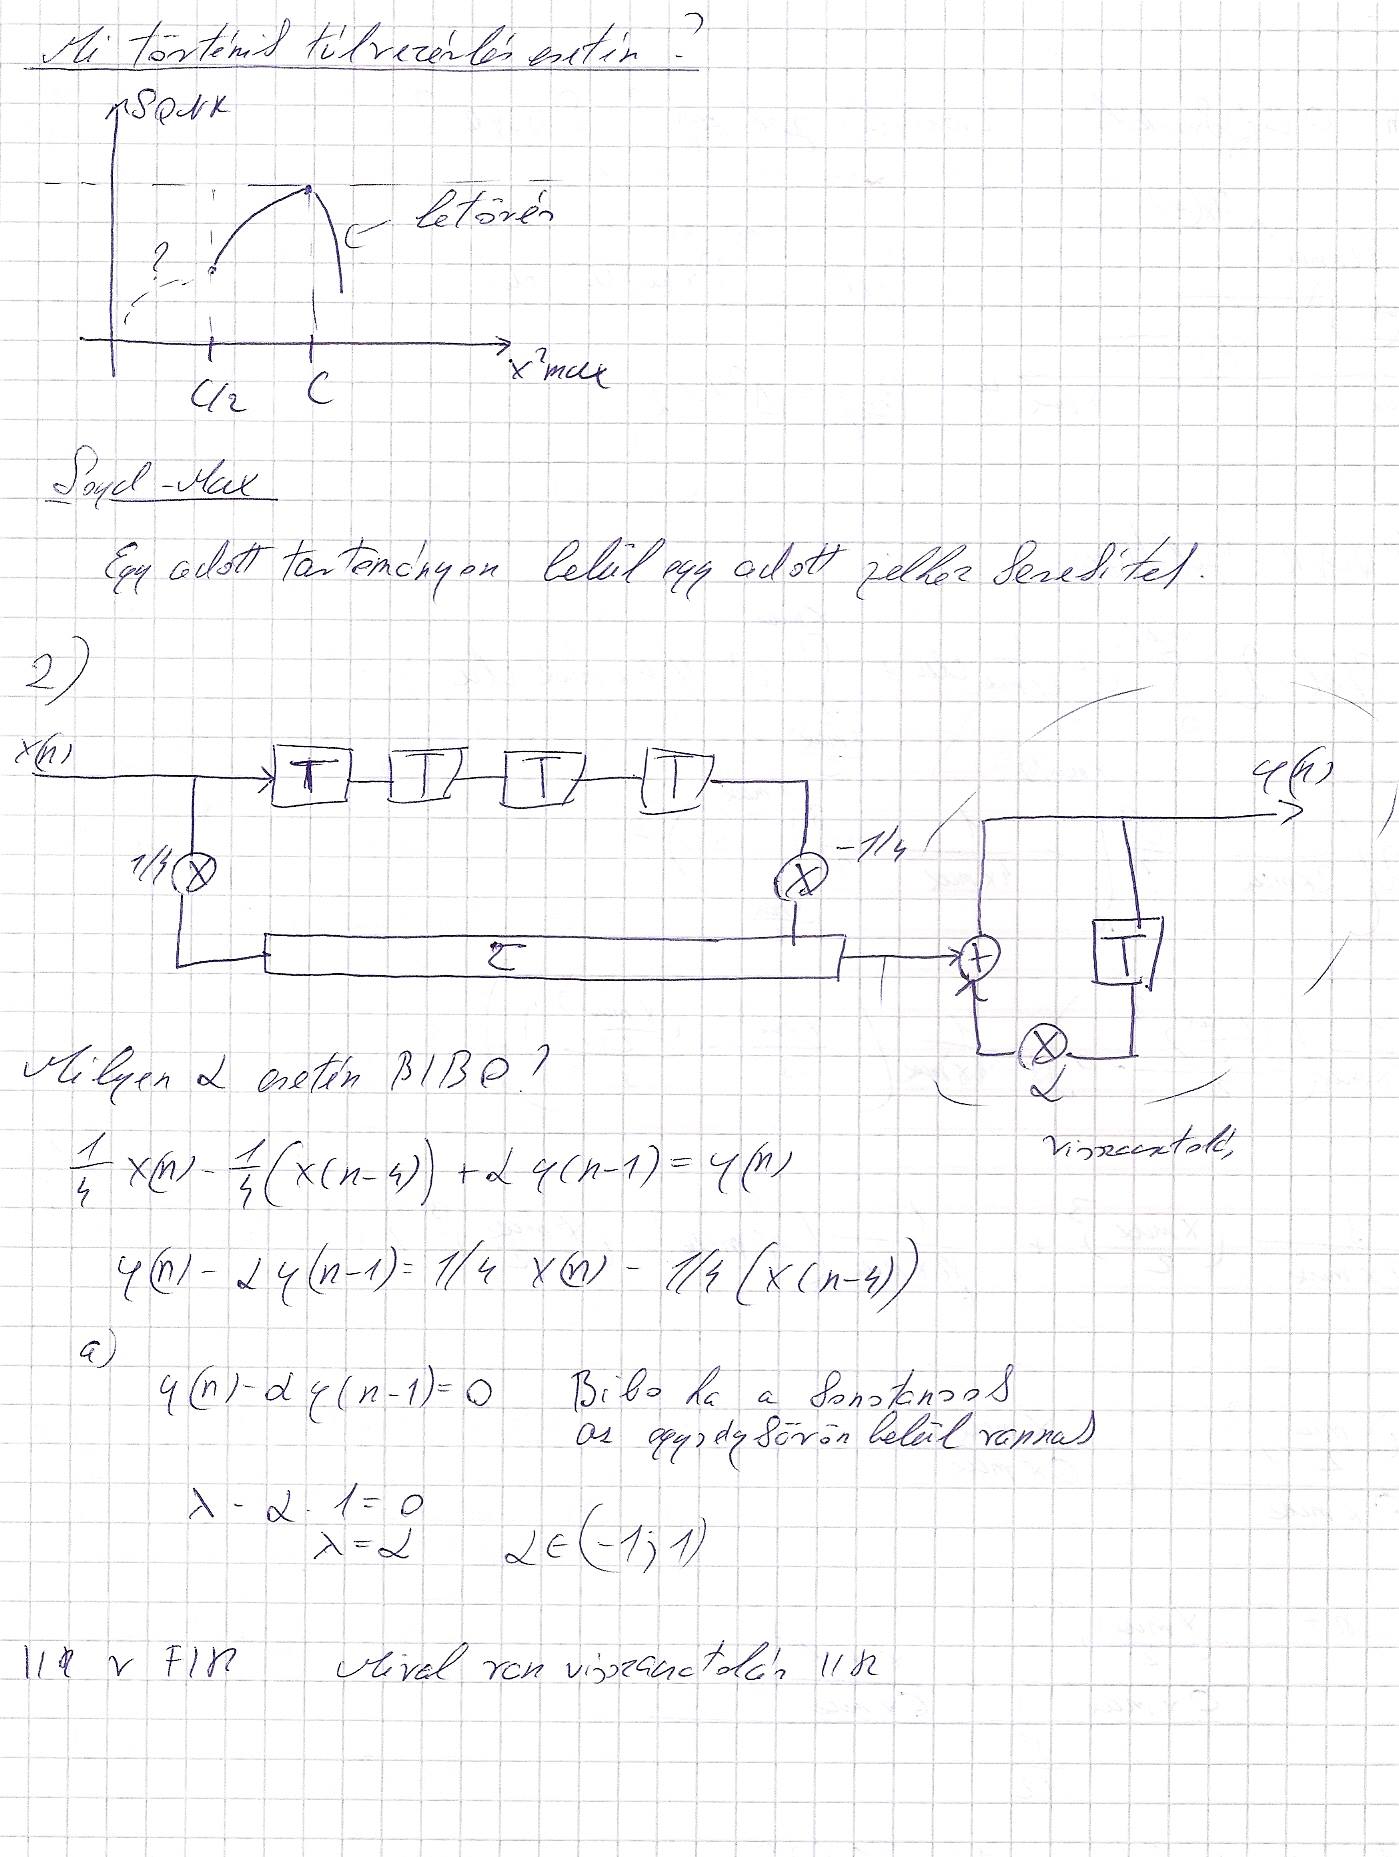 Mi történik túlvezérlés esetén?
SQNR
letörés
?
C/2
C
x²max
Loyd-Max
Egy adott tartományon belül egy adott jelhez kerekítek.
2)
x(n)
T
T
T
T
y(n)
1/4
X
X
-1/4
Σ
+
T
X
α
Milyen α esetén BIBO?
visszacsatolás
1/4 x(n) - 1/4 (x(n-4)) + α y(n-1) = y(n)
y(n) - α y(n-1) = 1/4 x(n) - 1/4 (x(n-4))
a)
y(n) - α y(n-1) = 0 Bibo ha a konstansok
az egységkörön belül vannak
λ - α · 1 = 0
λ = α α ∈ (-1; 1)
IIR v FIR Mivel van visszacsatolás IIR